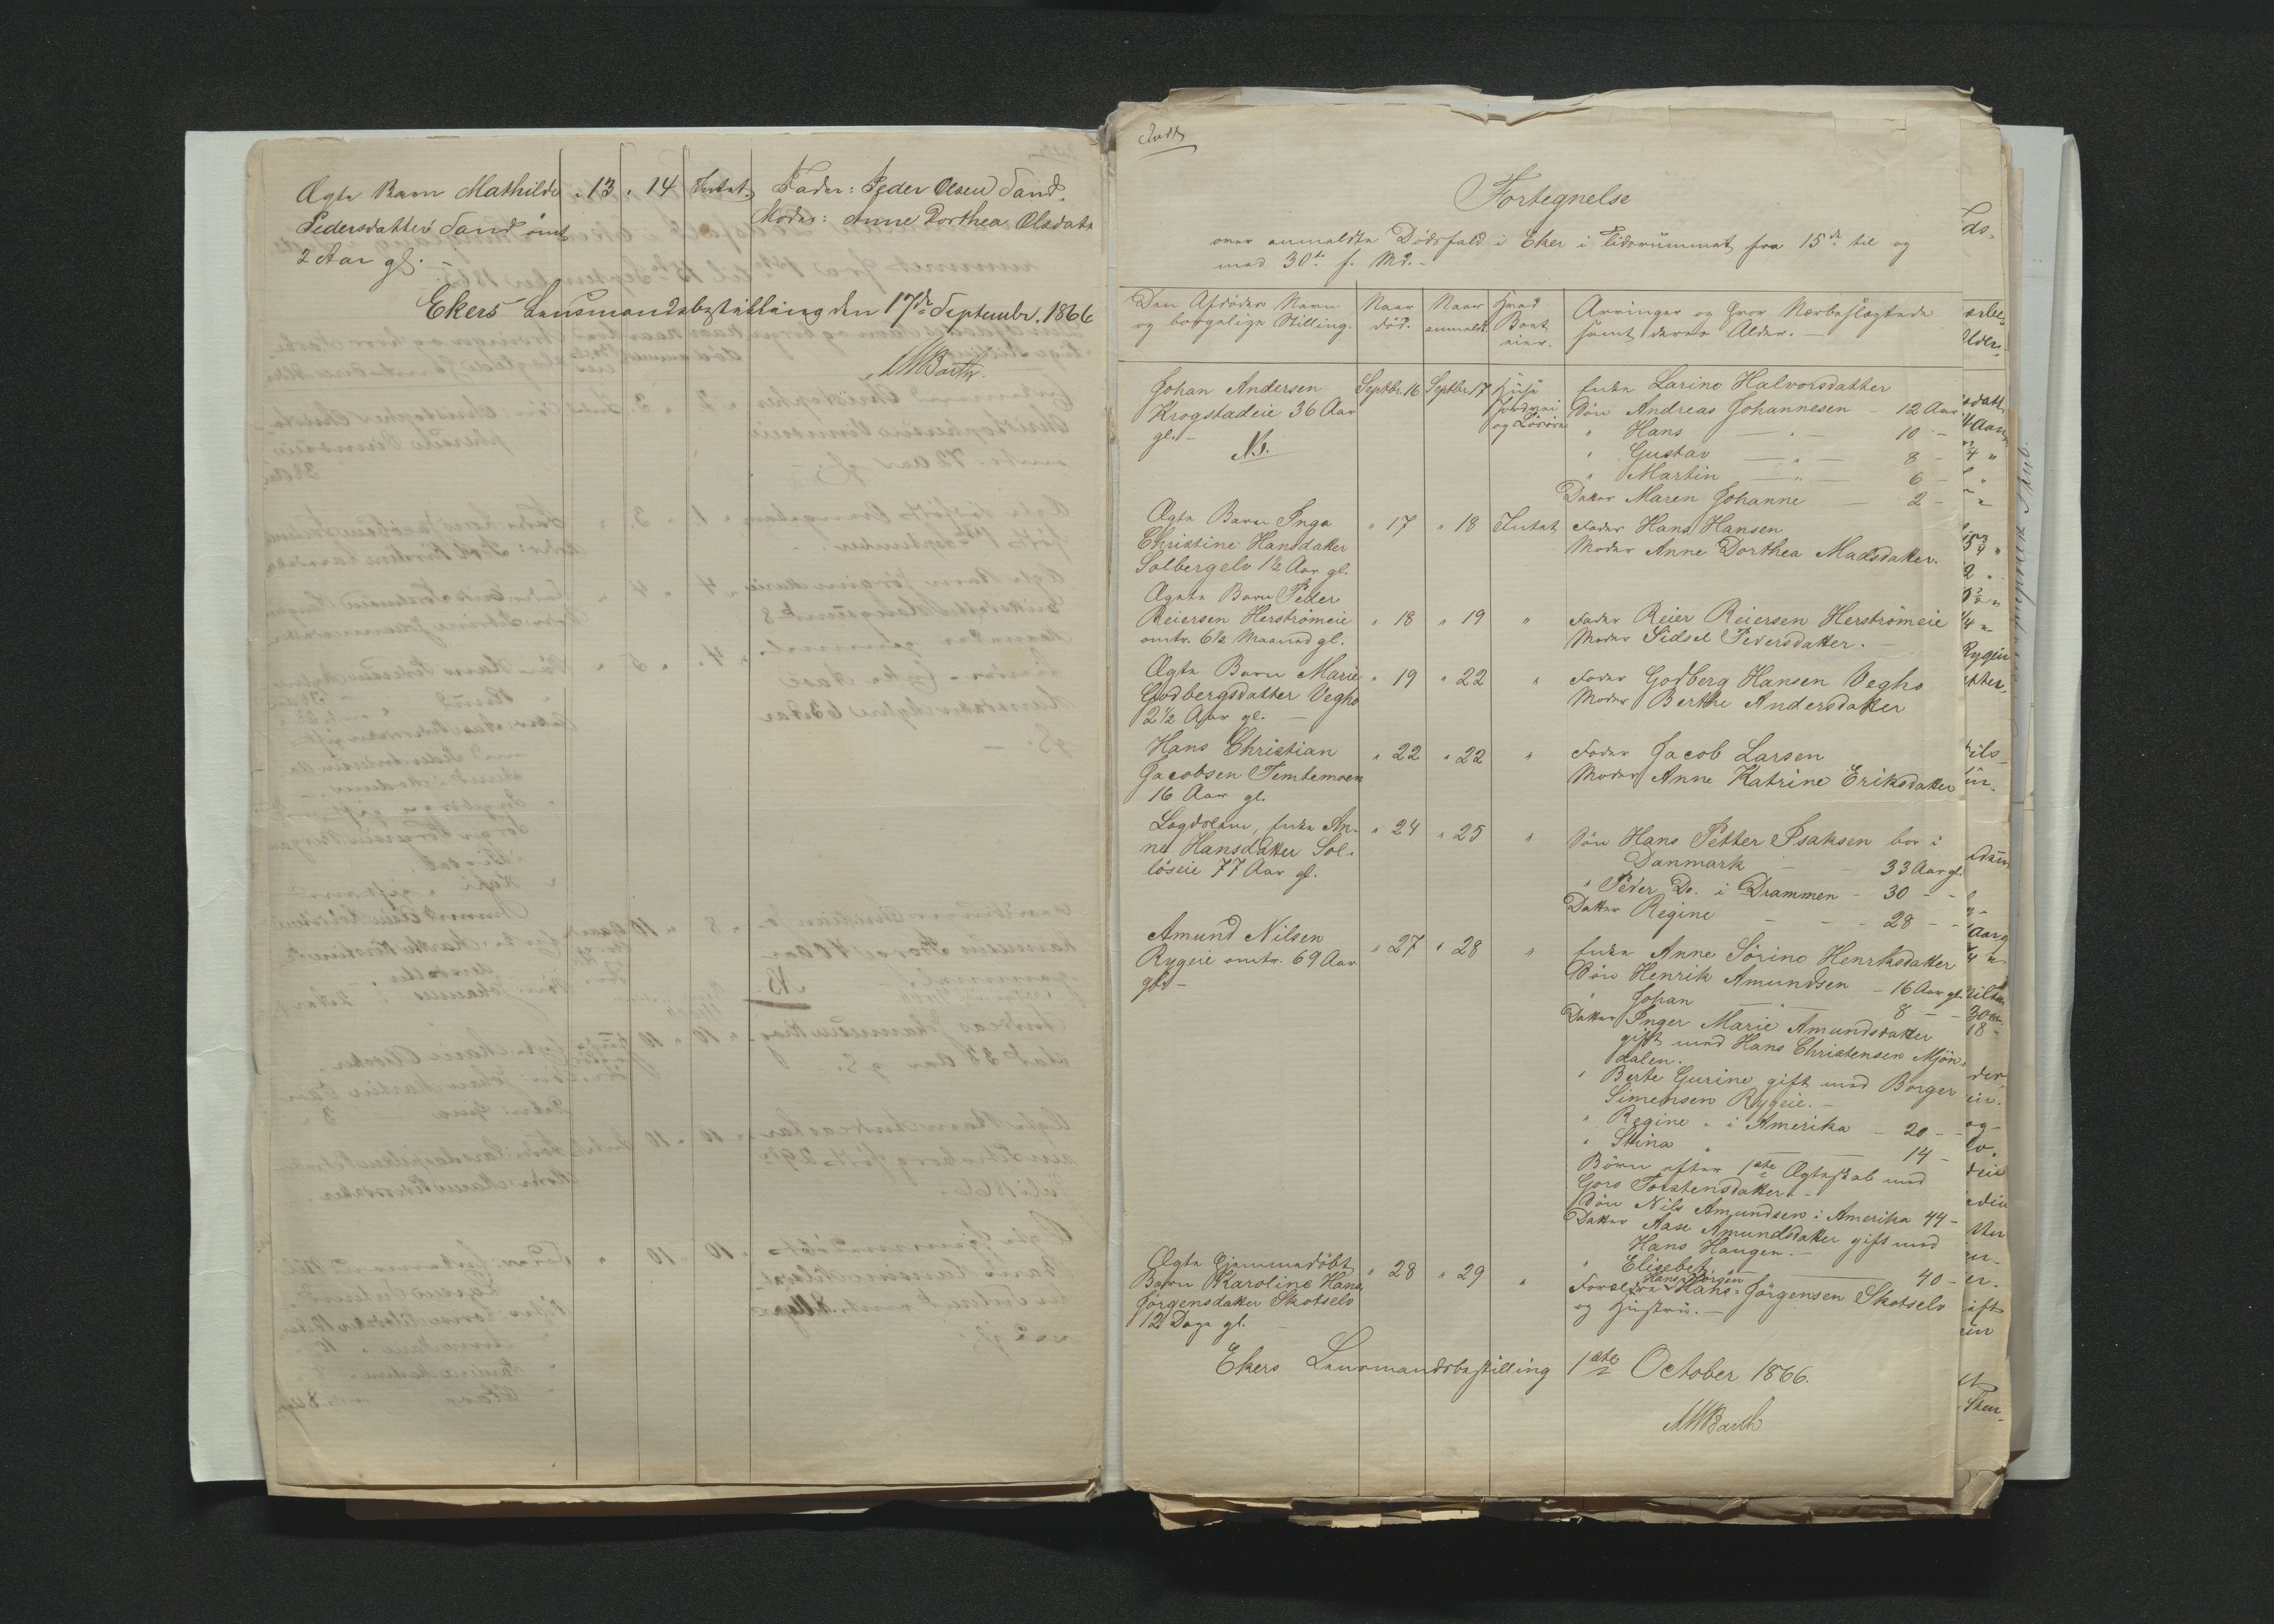 Ægte Barn Mathilde " 13 " 14 Intet Fader: Peder Olsen Sand.
Pedersdatter Sand omt Moder: Anne Dorthea Olsdatr
2 Aar gl. -
Ekers Lensmandsbestilling den 17de Septembr. 1866
MBarth.
Indt
Fortegnelse
over anmeldte Dødsfald i Eker i Tidsrummet fra 15de til og
med 30te f. Md. -
Den Afdødes Navn Naar Naar Hvad Arvinger og hvor Nærbeslægtede
og borgelige Stilling. død. anmeldt. Boet samt deres Alder. -
eier.
Johan Andersen Septbr. 16 Septbr 17 Huse Enke Larine Halvorsdatter
Krogstadeie 36 Aar Jordvei Søn Andreas Johannesen 12 Aar
gl. - og Løsøre " Hans — " — 10 -
Nb. " Gustav — " — 8 -
" Martin — " — 6 -
Datter Maren Johanne - 2 -
Ægte Barn Inga " 17 " 18 Intet Fader Hans Hansen
Christine Hansdatter Moder Anne Dorthea Madsdatter.
Solbergelv 1½ Aar gl.
Ægte Barn Peder
Reiersen Herstrømeie " 18 " 19 " Fader Reier Reiersen Herstrømeie
omtr. 6½ Maaned gl. Moder Sidsel Pedersdatter. -
Ægte Barn Marie " 19 " 22 " Fader Godberg Hansen Veghs
Godbergsdatter Veghs Moder Berthe Andersdatter
2½ Aar gl. -
Hans Christian " 22 " 22 " Fader Jacob Larsen
Jacobsen Temtemoen Moder Anne Katrine Eriksdatter
16 Aar gl.
Lægdslem, Enke An- " 24 " 25 " Søn Hans Petter Isaksen bor i
ne Hansdatter Sol- Danmark - - 33 Aar gl.
løseie 77 Aar gl. " Peder Do. i Drammen - 30 - -
Datter Regine - - - 28 - -
Amund Nilsen " 27 " 28 " Enke Anne Sørine Henriksdatter
Rygeie omtr. 69 Aar Søn Henrik Amundsen - 16 Aar gl.
gl. - " Johan — " — 8 - -
Datter Inger Marie Amundsdatter
gift med Hans Christensen Mjøn-
dalen.
" Berte Gurine gift med Borger
Simensen Rygeie. -
" Regine " i Amerika - 20 - -
" Stina " — 14 -
Børn efter 1ste Ægteskab med
Goro Torstensdatter. -
Søn Nils Amundsen i Amerika 44 -
Datter Aase Amundsdatter gift med
Hans Haugen. -
Ægte hjemmedøbt " 28 " 29 " " Elisebet — 40 -
Barn Karoline Hans Hans Jørgen
Jørgensdatter Skotselv Forældre Hans Jørgensen Skotselv
12 Dage gl. og Hustru. -
Ekers Lensmandsbestilling 1ste October 1866.
MBarth